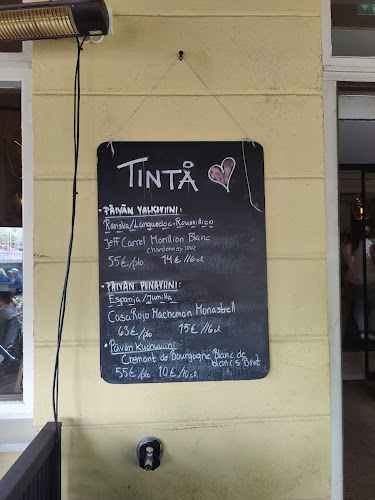 TINTÅ
• PÄIVÄN VALKOVIINI:
Ranska/Languedoc-Roussillon
Jeff Carrel Morillion Blanc
Chardonnay
55€/plo 14€/16cl
• PÄIVÄN PUNAVIINI:
Espanja/Jumilla
Casa Rojo Machoman Monastrell
63€/plo 15€/16cl
• Päivän Kuohuviini:
Cremant de Bourgogne Blanc de
blancs Brut
55€/plo 10€/10cl